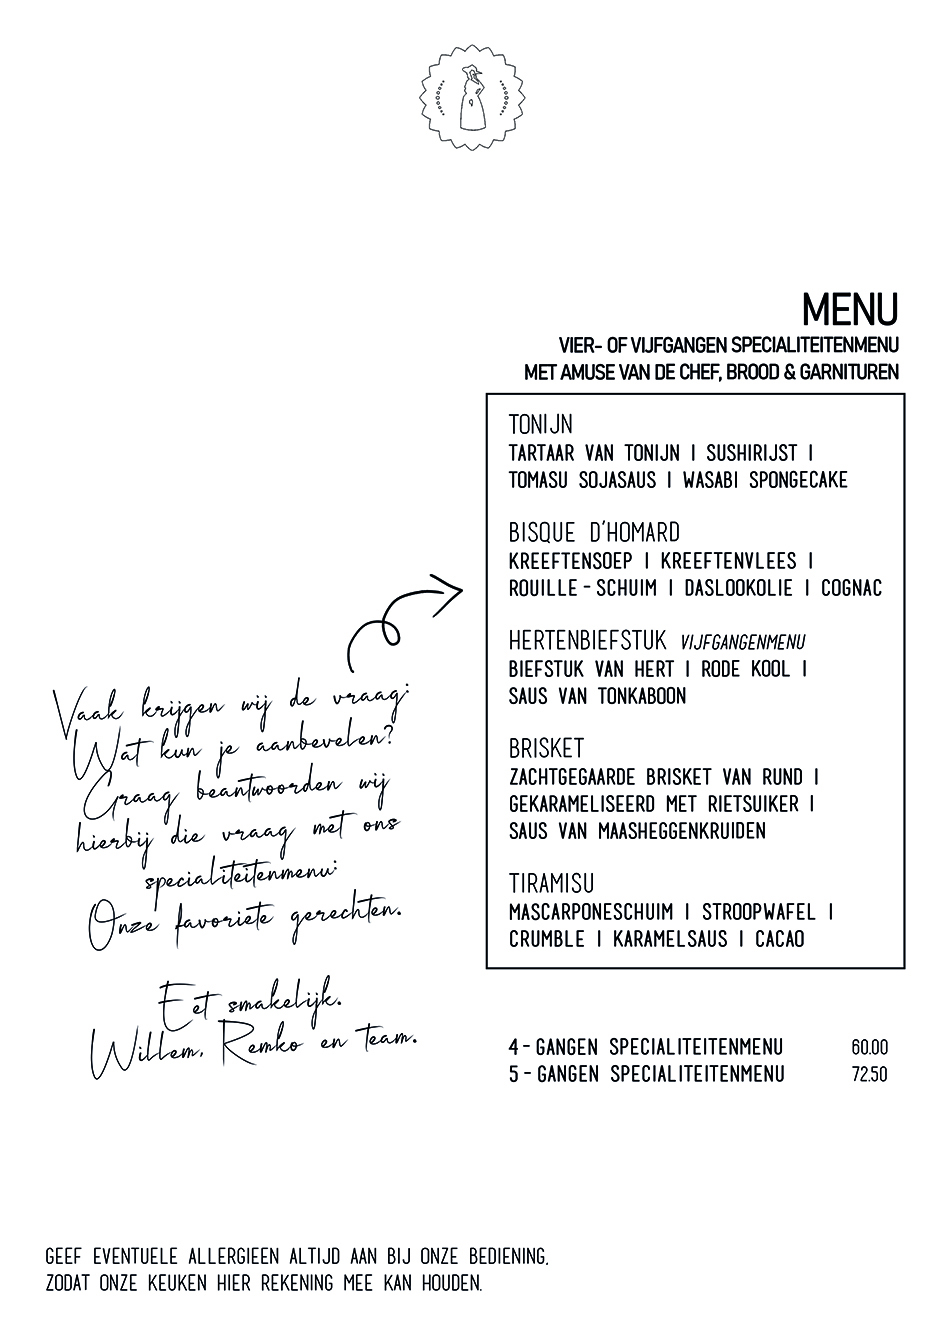 MENU
VIER- OF VIJFGANGEN SPECIALITEITENMENU
MET AMUSE VAN DE CHEF, BROOD & GARNITUREN
TONIJN
TARTAAR VAN TONIJN | SUSHIRIJST |
TOMASU SOJASAUS | WASABI SPONGECAKE
BISQUE D'HOMARD
KREEFTENSOEP | KREEFTENVLEES |
ROUILLE - SCHUIM | DASLOOKOLIE | COGNAC
HERTENBIEFSTUK VIJFGANGENMENU
BIEFSTUK VAN HERT | RODE KOOL |
SAUS VAN TONKABOON
BRISKET
ZACHTGEGAARDE BRISKET VAN RUND |
GEKARAMELISEERD MET RIETSUIKER |
SAUS VAN MAASHEGGENKRUIDEN
TIRAMISU
MASCARPONESCHUIM | STROOPWAFEL |
CRUMBLE | KARAMELSAUS | CACAO
Vaak krijgen wij de vraag:
Wat kun je aanbevelen?
Graag beantwoorden wij
hierbij die vraag met ons
specialiteitenmenu:
Onze favoriete gerechten.
Eet smakelijk.
Willem, Remko en team.
4 - GANGEN SPECIALITEITENMENU 60.00
5 - GANGEN SPECIALITEITENMENU 72.50
GEEF EVENTUELE ALLERGIEEN ALTIJD AAN BIJ ONZE BEDIENING,
ZODAT ONZE KEUKEN HIER REKENING MEE KAN HOUDEN.